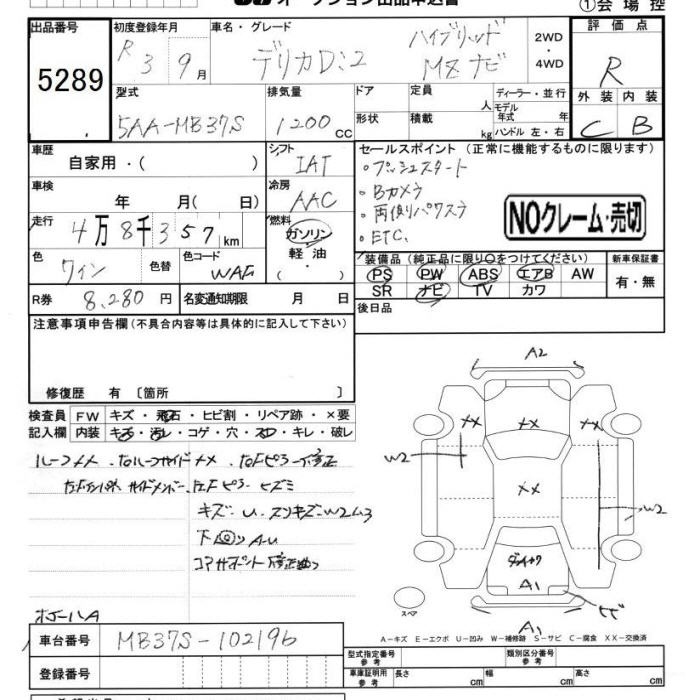 オークション出品申込書
①会場控
出品番号
5289
初度登録年月
R 3 9月
車名・グレード
デリカD:2
ハイブリッド
MZ ナビ
2WD
・
4WD
評価点
R
外装 内装
C B
型式
5AA-MB37S
排気量
1200 cc
ドア
形状
定員 人
積載 kg
ディーラー・並行
モデル年式 年
ハンドル 左・右
車歴
自家用・( )
シフト
IAT
セールスポイント (正常に機能するものに限ります)
・プッシュスタート
・Bカメラ
・両側パワスラ
・ETC.
NOクレーム・売切
車検
年 月( 日)
冷房
AAC
走行
4万8千357km
燃料
ガソリン
軽油
( )
色
ワイン
色替
色コード
WAF
装備品 (純正品に限り○をつけてください)
PS PW ABS エアB AW
SR ナビ TV カワ
新車保証書
有・無
R券
8,280円
名変通知期限 月 日
後日品
注意事項申告欄(不具合内容等は具体的に記入して下さい)
修復歴 有 〔箇所 〕
検査員記入欄
FW キズ・飛石・ヒビ割・リペア跡・×要
内装 キズ・汚レ・コゲ・穴・スレ・キレ・破レ
キズ・U・スリキズ・W2ム3
A2
XX XX XX
W2
XX
W2
A1
ヒビ
A1
スペア
A-キズ E-エクボ U-凹み W-補修跡 S-サビ C-腐食 XX-交換済
車台番号
MB37S-102196
登録番号
型式指定番号
参考
類別区分番号
参考
車庫証明用
参考
長さ cm 幅 cm 高さ cm